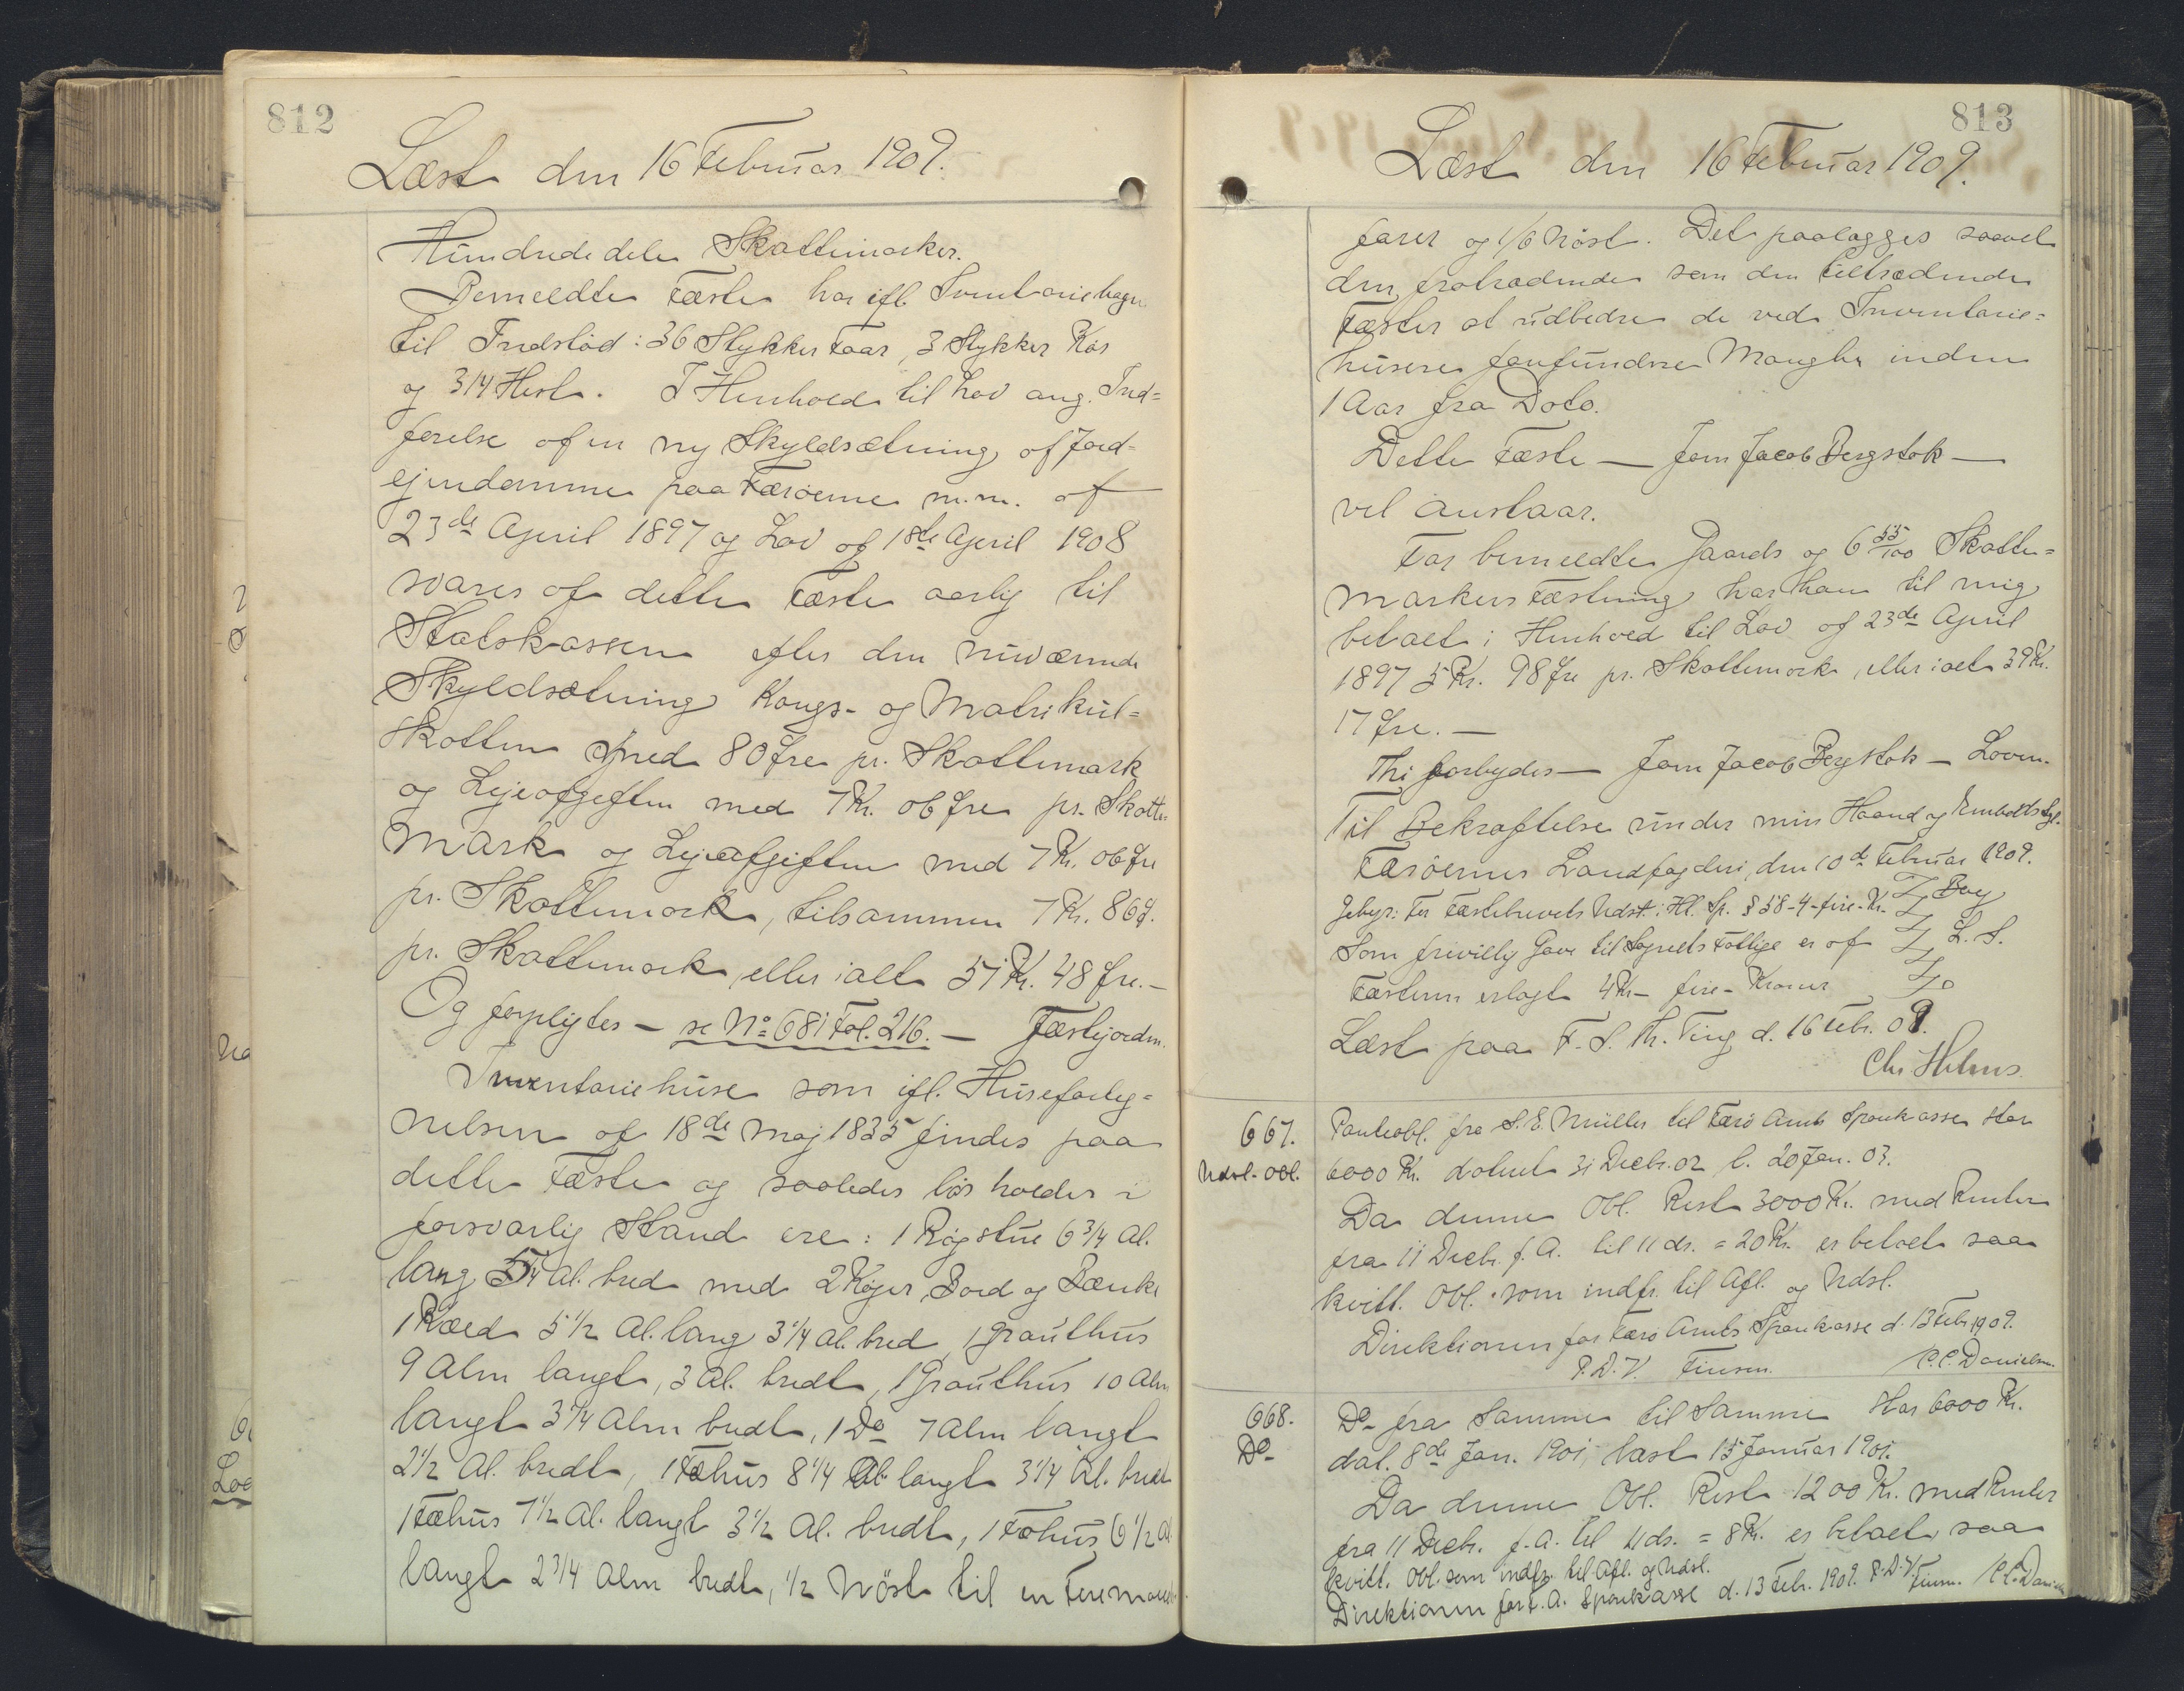 812
Læst den 16 Februar 1909.
Hundrededele Skattemarker.
Bemeldte Fæste har ifl. Inventariebogen
til Indstöd: 36 Stykker Faar, 3 Stykker Kör
og 3/4 Hest. I Henhold til Lov ang. Ind=
förelse af en ny Skyldsætning af Jord-
ejendomme paa Færöerne m.m. af
23de April 1897 og Lov af 1ste April 1908
svares af dette Fæste aarlig til
Statskassen efter den nuværende
Skyldsætning Kongs- og Matrikul=
skatten med 80 Øre pr. Skattemark
og Lejeafgiften med 7 Kr. 06 Øre pr. Skatte
mark og Lejeafgiften med 7 Kr. 06 Øre
pr. Skattemark, tilsammen 7 Kr. 86 Ø.
pr. Skattemark eller ialt 51 Kr. 48 Øre.-
Og forpligtes - se No 681 Fol. 216. - Fæstejorden.
Inventariehuse som ifl. Husefarteg=
nelsen af 18de Maj 1835 findes paa
dette Fæste og saaledes bör holdes i
forsvarlig Stand ere: 1 Røgstue 6 3/4 Al.
lang 5 1/4 Al. bred med 2 Køjer, Bord og Bænke
1 Kæld 5 1/2 Al. lang 3 1/4 Al. bred, 1 Grauthus
9 Alm langt, 3 Al. bredt, 1 Grauthus 10 Alm
langt 3 1/4 Alm bredt, 1 Do 7 Alm langt
2 1/2 Al. bredt, 1 Fæhus 8 1/4 Al. langt 3 1/4 Al. bredt
1 Fæhus 7 1/2 Al. langt 3 1/2 Al. bredt, 1 Fæhus 6 1/2 Al
langt 2 3/4 Alm bredt, 1/2 Nöst til en Firemands
813
Læst den 16 Februar 1909.
farer og 1/6 Nöst. Det paalægges saavel
den fratrædende som den tiltrædende
Fæster at udbedre de ved Inventarie=
husene forefundne Mangler inden
1 Aar fra Dato.
Dette Fæste — Joen Jacob Bergstok —
vel Anstaar.
For bemeldte Gaards og 6 55/100 Skatte=
markers Fæstning har han til mig
betalt i Henhold til Lov af 23de April
1897 5 Kr. 98 Øre pr. Skattemark, eller ialt 39 Kr.
17 Øre. —
Thi forbydes — Joen Jacob Bergstok — Loven.
Til Bekræftelse under min Haand og Embedts Sgl.
Færöernes Landfogderi, den 10de Februar 1909.
Gebyr: For Fæstebrevets Udst. i Hl. Sp. § 58-4-fire-Kr. Bøg
Som frivillig Gave til Sognets Fattige er af L. S.
Fæsteren erlagt 4 Kr - fire - Kroner
Læst paa F. S. Th. Ting d. 16 Febr. 09.
Chr. Holms.
667. Udsl. Obl.
Panteobl. fra S. E. Müller til Færö Amts Sparekasse stor
6000 Kr. dateret 31 Decbr. 02 l. 20 Jan. 03.
Da denne Obl. Rest 3000 Kr. med Renter
fra 11 Decbr. f. A. til 11 ds. = 20 Kr. er betalt saa
kvitt. Obl. som indfr. til Afl. og Udsl.
Direktionen for Færö Amts Sparekasse d. 13 Febr 1909.
P. D. V. Finsen. P. C. Danielsen.
668. Do
Do fra Samme til Samme stor 6000 Kr.
dat. 8de Jan. 1901, læst 15 Januar 1901.
Da denne Obl. Rest 1200 Kr. med Renter
fra 11 Decbr. f. A. til 11 ds. = 8 Kr. er betalt saa
kvitt. Obl. som indfr. til Afl. og Udsl.
Direktionen for F. A. Sparekasse d. 13 Febr. 1909. P. D. V. Finsen. P. C. Daniels